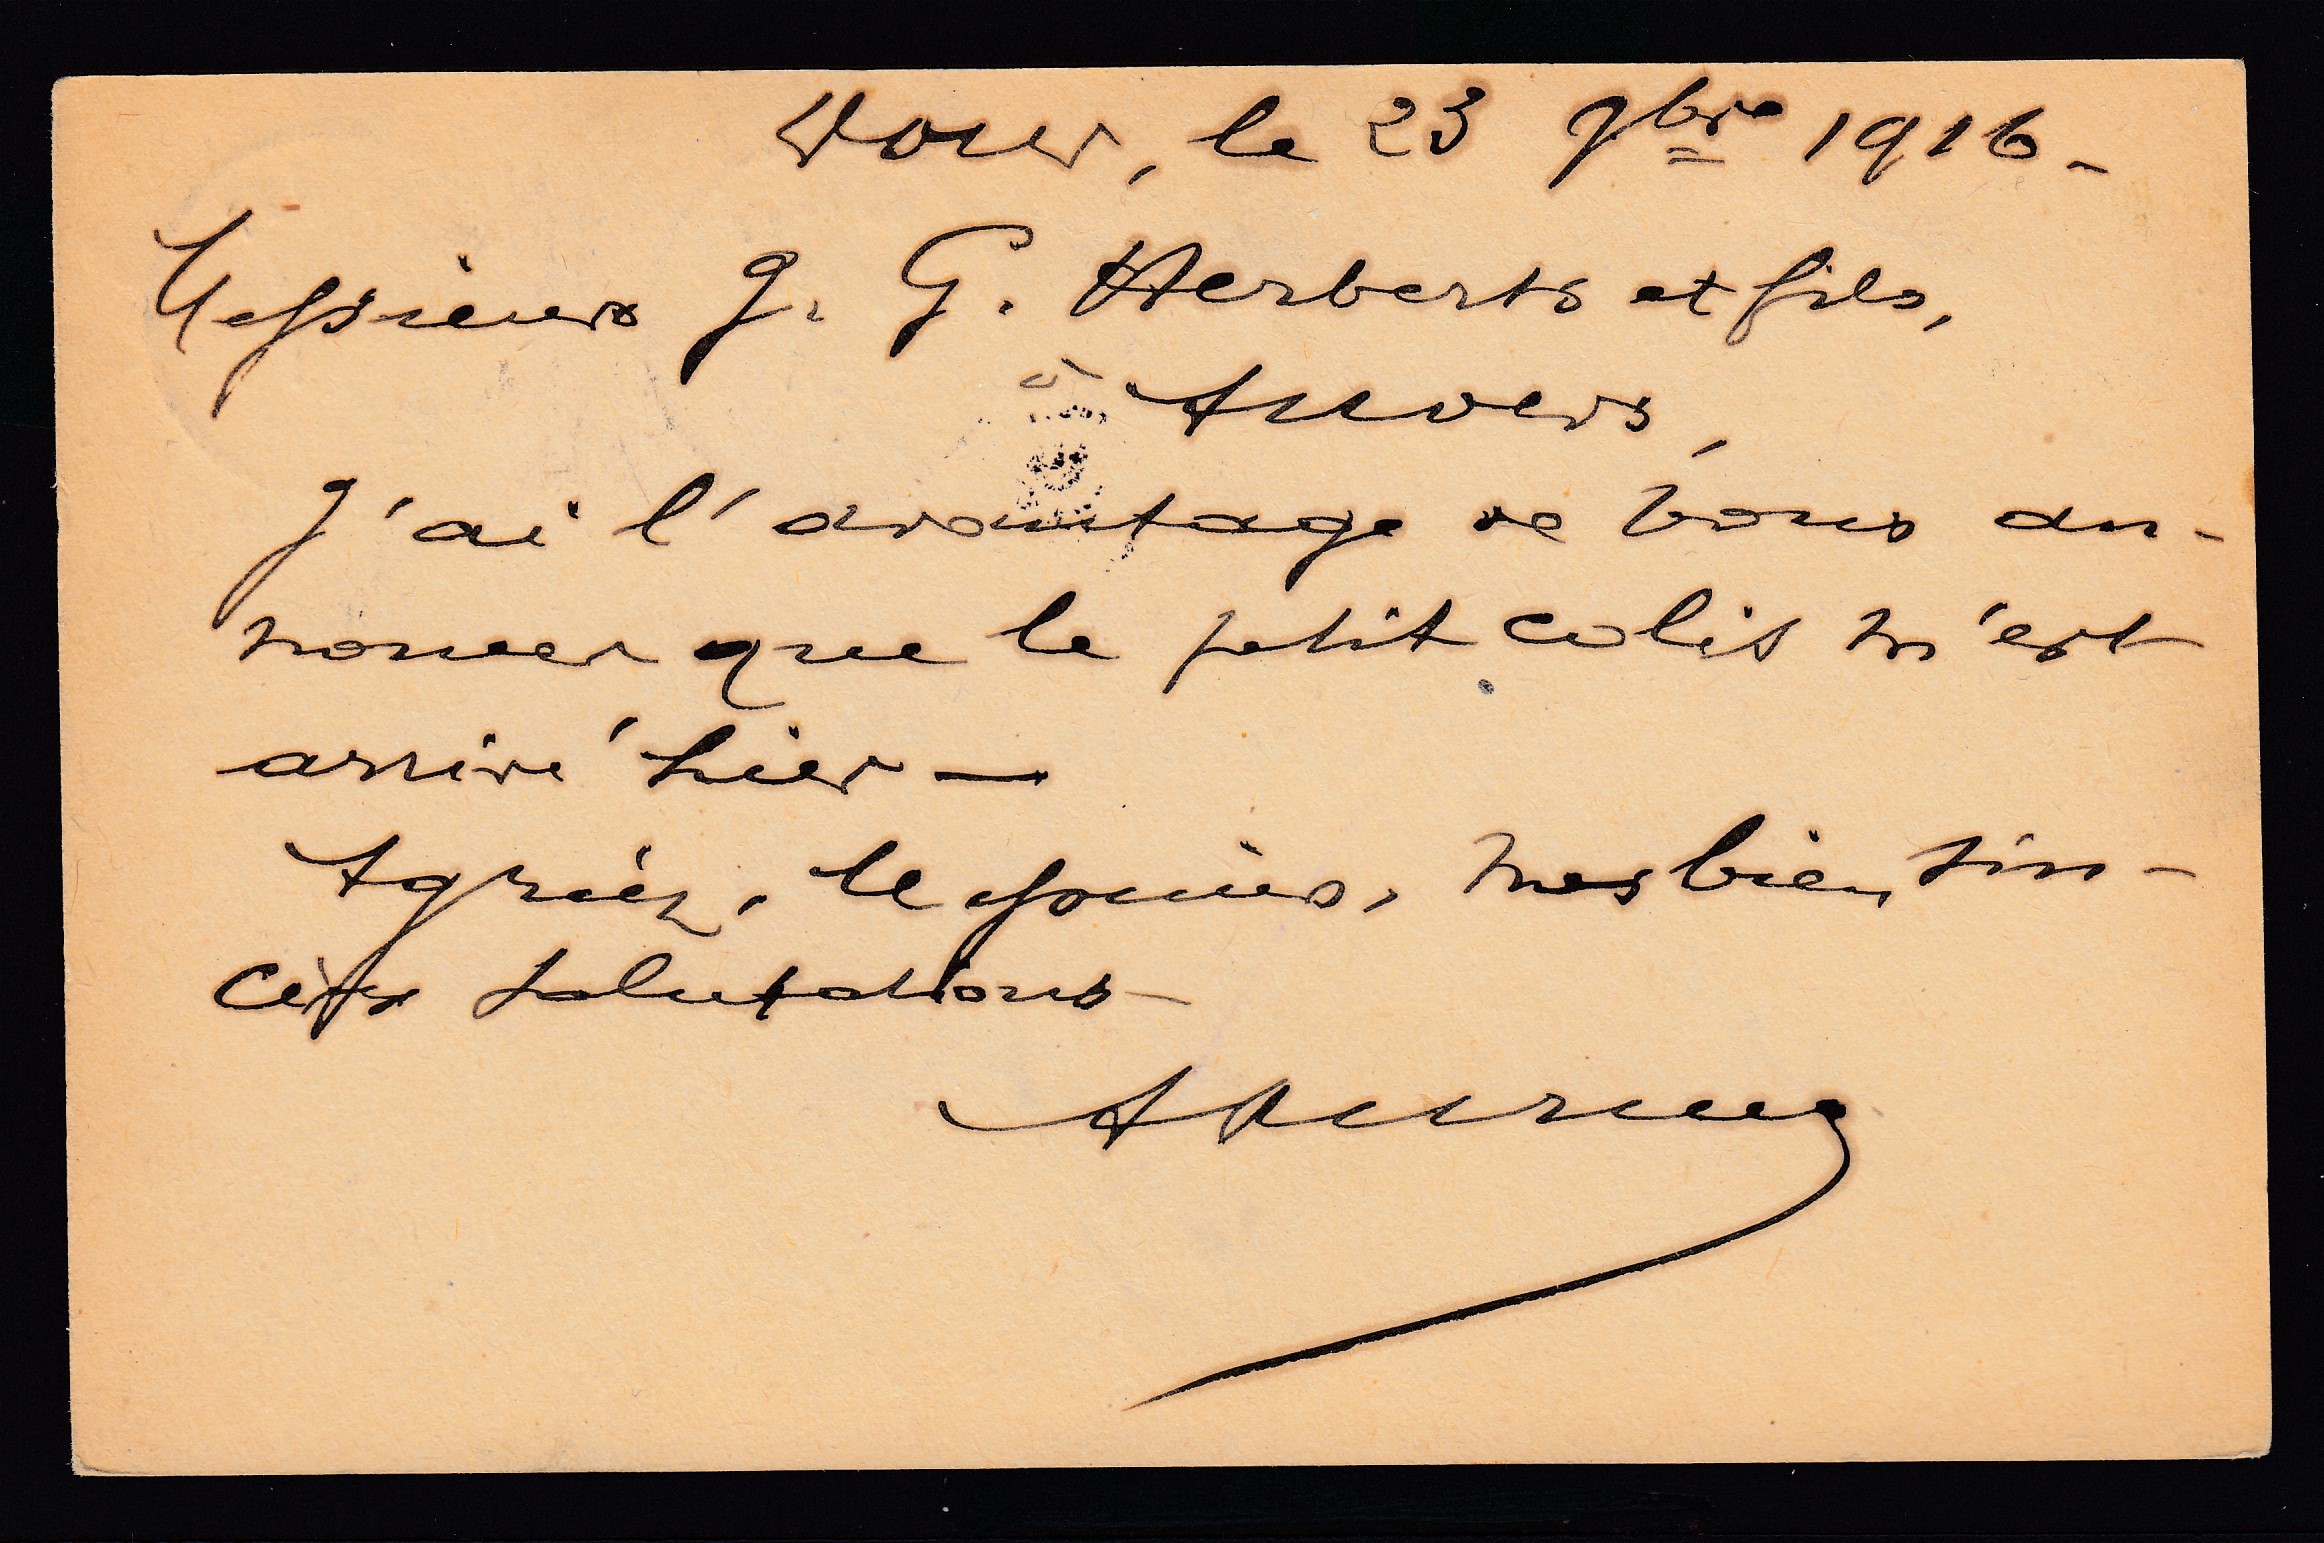 Dour, le 23 9bre 1916-
Messieurs J. G. Herberts et fils,
à Anvers,
J'ai l'avantage de vous an-
noncer que le petit colis m'est
arrivé hier —
Agréez, Messieurs, mes bien sin-
cères salutations-